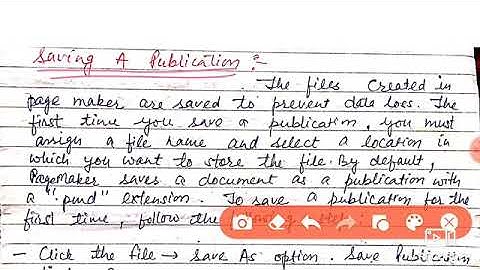 Saving A Publication :-
The files created in
page maker are saved to prevent data loss. The
first time you save a publication, you must
assign a file name and select a location in
which you want to store the file. By default,
PageMaker saves a document as a publication with
a ".pmd" extension. To save a publication for the
first time, follow the following
- Click the file → Save As option. Save Publication